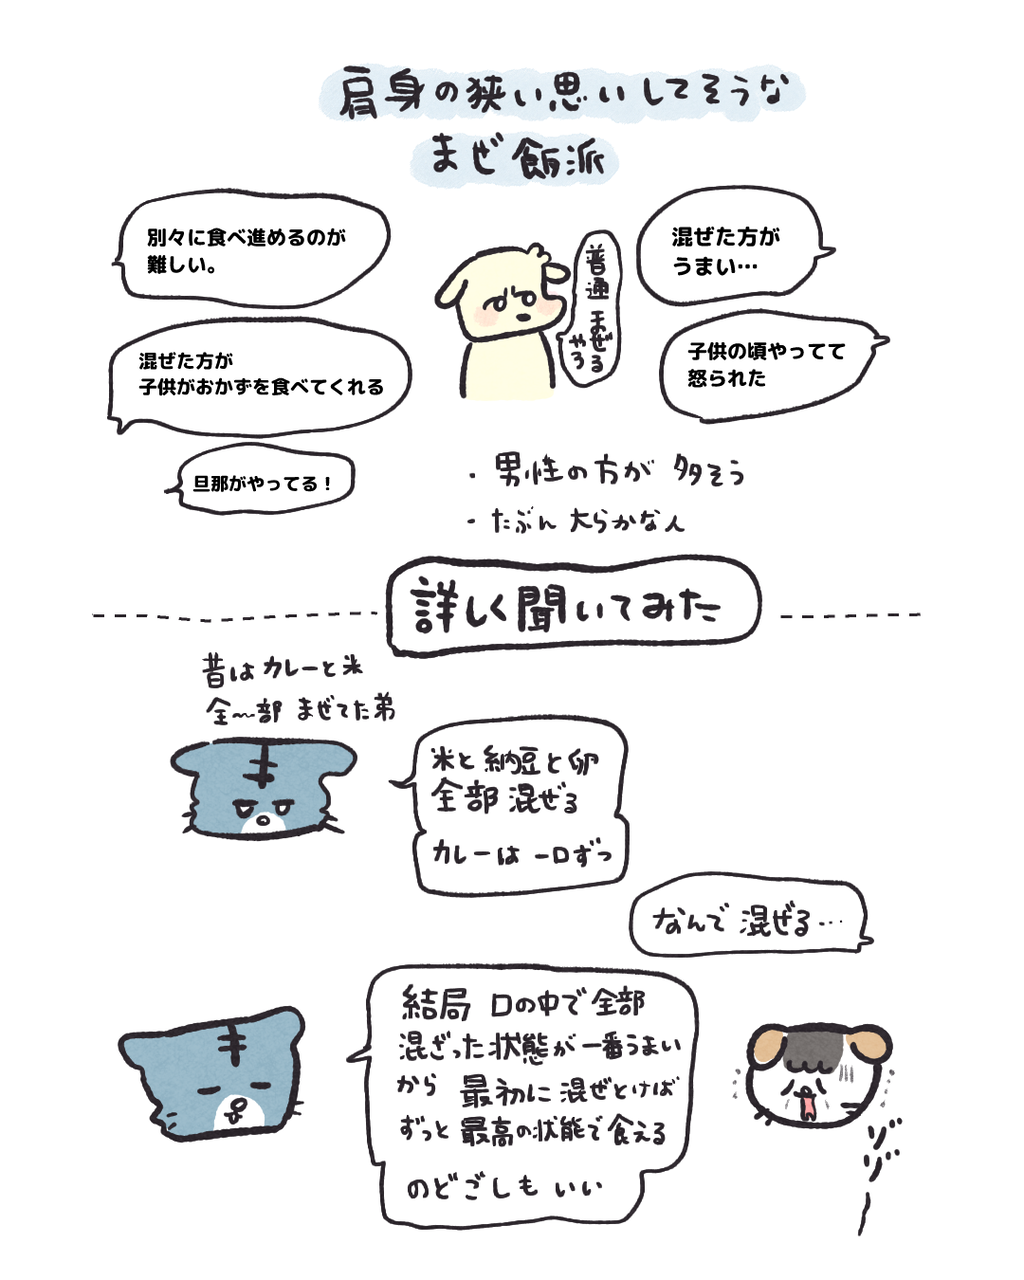 肩身の狭い思いしてそうな
まぜ飯派
別々に食べ進めるのが
難しい。
混ぜた方が
うまい…
普通 まぜる
やろ
混ぜた方が
子供がおかずを食べてくれる
子供の頃やってて
怒られた
旦那がやってる！
・男性の方が 多そう
・たぶん 大らかな人
詳しく聞いてみた
昔はカレーと米
全〜部 まぜてた弟
米と納豆と卵
全部 混ぜる
カレーは 一口ずつ
なんで 混ぜる…
結局 口の中で全部
混ざった状態が一番うまい
から 最初に混ぜとけば
ずっと最高の状態で食える
のどごしも いい
ゾゾー